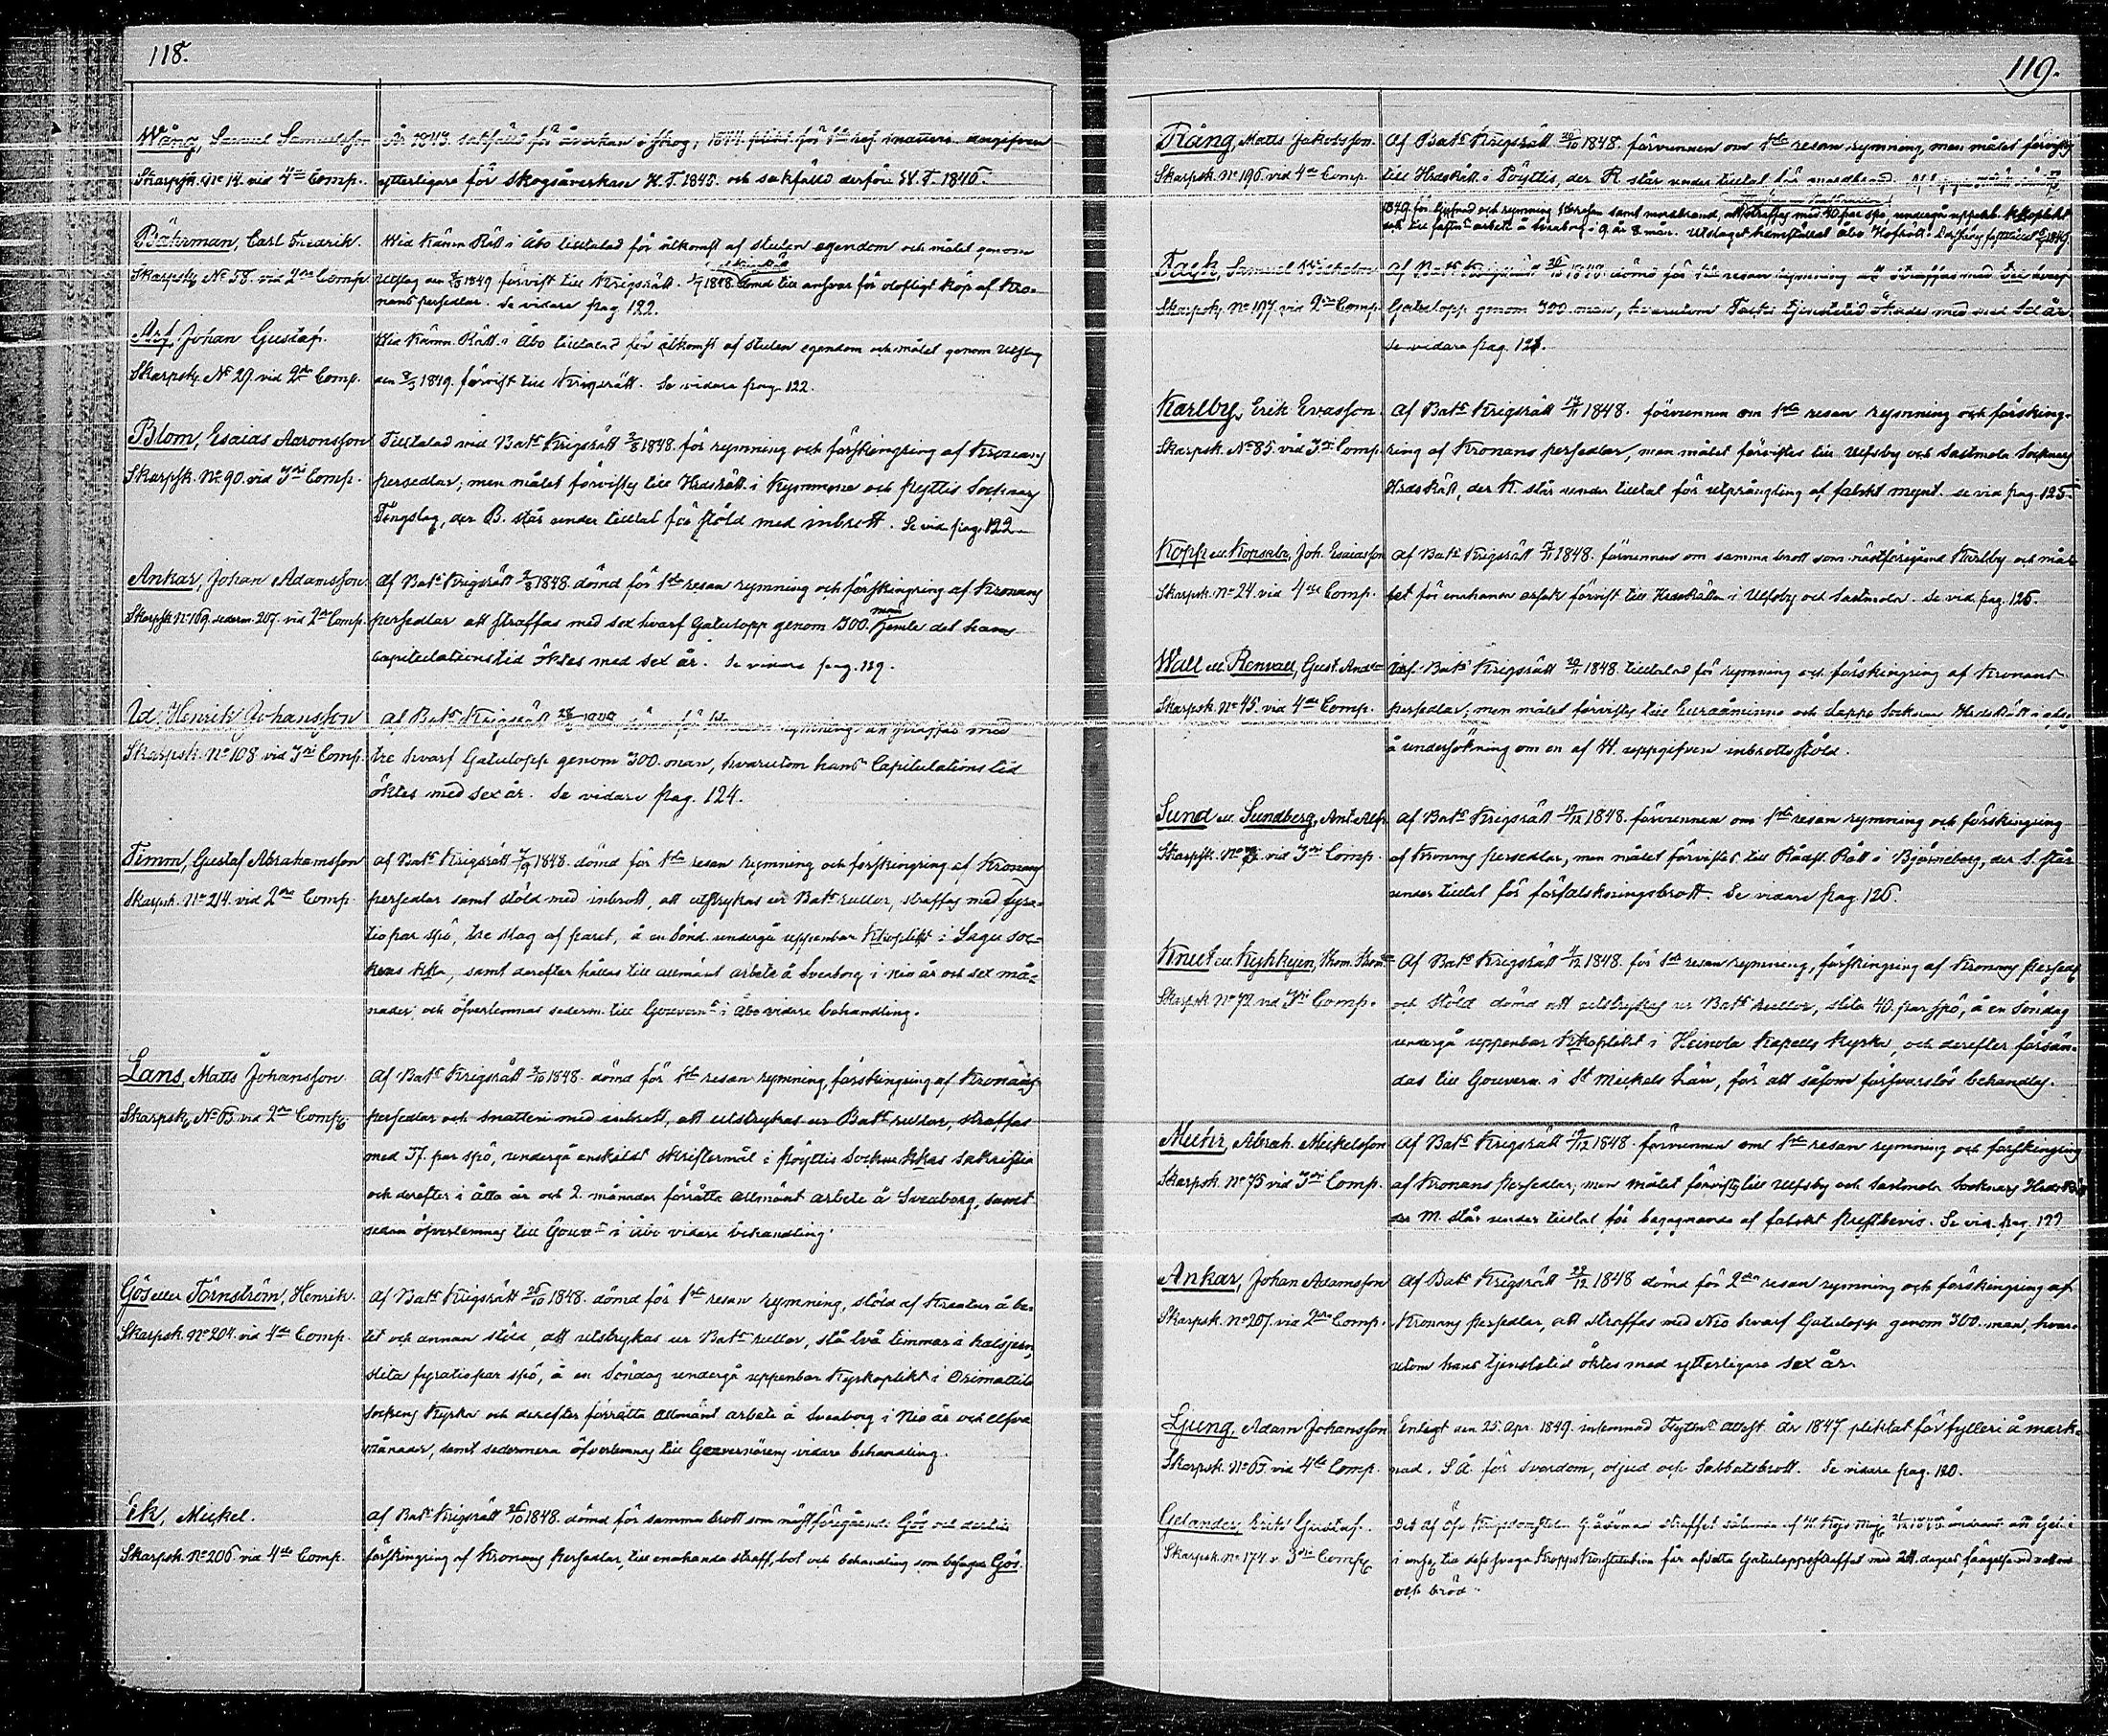 118.
Wång, Samuel Samuelsson
Skarpsk. No 14. vid 4de Comp.
År 1843. sakfälld för åverkan å skog; 1844. plikt. för 1sta res. snatteri. angifven
ytterligare för skogsåverkan H. T. 1845. och sakfälld derför W. T. 1846.
Båhrman, Carl Fredrik.
Skarpsk. No 58. vid 2dra Comp
Wid Kämn. Rätt i Åbo tilltalad för åtkomst af stulen egendom och målet genom
Utslag den 8/3 1849 förvist till Krigsrätt. 1848. dömd till ansvar för olofligt köp af Kro-
nans persedlar. Se vidare pag. 122.
Arf, Johan Gustaf.
Skarpsk. No 27. vid 2dra Comp.
Wid Kämn. Rätt i Åbo tilltalad för åtkomst af stulen egendom och målet genom Utslag
den 8/3 1849. förvist till Krigsrätt. Se vidare pag. 122.
Blom, Esaias Aaronsson
Skarpsk. No 90. vid 3dje Comp.
Tilltalad vid Bats Krigsrätt 3/8 1848. för rymning och förskingring af Kronans
persedlar; men målet förvistes till Hrdsrätt. i Kymmene och Pyttis Socknars
Tingslag, der B. står under tilltal för stöld med inbrott. Se vid. pag. 122.
Ankar, Johan Adamsson.
Skarpsk. No 169. sederm. 207. vid 2dra Comp.
Af Bats Krigsrätt 3/8 1848. dömd för 1sta resan rymning och förskingring af Kronans
persedlar att straffas med sex hvarf Gatulopp genom 300. man jemte det hans
Capitulationstid öktes med sex år. Se vidare pag. 119.
Id, Henrik Johansson
Skarpsk. No 108 vid 3dje Comp.
Af Bats Krigsrätt 28 rymning att straffas med
tre hvarf Gatulopp genom 300. man, hvarutom hans Capitulationstid
öktes med sex år. Se vidare pag. 124.
Timm, Gustaf Abrahamsson
Skarpsk. No 214. vid 2dra Comp.
Af Bats Krigsrätt 7/9 1848. dömd för 1sta resan rymning och förskingring af Kronans
persedlar samt stöld med inbrott, att utstrykas ur Bats rullor, straffas med fyra-
tio par spö, tre slag af paret, å en sönd. undergå uppenbar Kkoplikt i Sagu soc-
kens Kka, samt derefter hållas till allmänt arbete å Sveaborg i nio år och sex må-
nader och öfverlemnas sederm. till Gouvern:s i Åbo vidare behandling.
Lans, Matts Johansson.
Skarpsk. No 63. vid 2dra Comp.
Af Bats Krigsrätt 3/10 1848. dömd för 1sta resan rymning, förskingring af Kronans
persedlar och snatteri med inbrott, att utstrykas ur Bats rullor, straffas
med 37. par spö, undergå enskildt skriftermål i Pöyttis Sockne Kkas Sakristia
och derefter i åtta år och 2. månader förrätta allmänt arbete å Sveaborg, samt
sedan öfverlemnas till Gouv:s i Åbo vidare behandling.
Gös eller Törnström, Henrik.
Skarpsk. No 204. vid 4de Comp.
Af Bats Krigsrätt 26/10 1848. dömd för 1sta resan rymning, stöld af Kreatur å be-
tet och annan stöld, att utstrykas ur Bats rullor, stå två timmar i halsjern,
slita fyratio par spö, å en Söndag undergå uppenbar Kyrkoplikt i Orimattila
Sockens Kyrka och derefter förrätta allmänt arbete å Sveaborg i nio år och elfva
månader, samt sedermera öfverlemnas till Gouvernörens vidare behandling.
Ek, Mickel.
Skarpsk. No 206. vid 4de Comp.
Af Bats Krigsrätt 26/10 1848. dömd för samma brott som nästföregående Gös och dertill
förskingring af Kronans persedlar, till enahanda straff, bot och behandling som besagde Gös.
119.
Rång, Matts Jakobsson.
Skarpsk. No 196. vid 4de Comp.
Af Bats Krigsrätt 20/10 1848. förvunnen om 1sta resan rymning, men målet förvistes
till Hrdsrätt i Pöyttis, der R. står under tilltal för mordbrand.
1849 för stöld och rymning 1sta resan samt mordbrand, att straffas med 40 par spö, undergå uppenb. Kkoplikt
och till fästn. arbete å Sveaborg i 9 år 8 mån. Utslaget hemställdt Åbo Hofrätt.
Tack, Samuel Wilhelm
Skarpsk. No 197. vid 2dra Comp.
Af Bats Krigsrätt dömd för 1sta resan rymning att straffas med tre hvarf
Gatulopp genom 300. man, hvarutom Tacks tjenstetid ökades med sex år
Se vidare pag. 121.
Karlby, Erik Evasson.
Skarpsk. No 85. vid 3dje Comp.
Af Bats Krigsrätt 14/11 1848. förvunnen om 1sta resan rymning och försking-
ring af Kronans persedlar, men målet förvistes till Ulfsby och Sastmola Socknars
Hrds Rätt, der K. står under tilltal för utprångling af falskt mynt. se vid pag. 125.
Kopp ell. Kopsala, Joh. Esaiasson
Skarpsk. No 24. vid 4de Comp.
Af Bats Krigsrätt 1848. förvunnen om samma brott som nästföregående Karlby och mål-
let för enahanda orsak förvist till Hrdsrätten i Ulfsby och Sastmola. Se vid. pag. 126.
Wall ell. Renvall, Gust. And:
Skarpsk. No 45. vid 4de Comp.
Vid Bats Krigsrätt 20/11 1848. tilltalad för rymning och förskingring af Kronans
persedlar; men målet förvistes till Euraåminne och Lappi Socknars Hrdsrätt
å undersökning om en af W. uppgifven inbrottsstöld.
Sund ell. Sundberg, Ant. Alf.
Skarpsk. No vid 3dje Comp.
Af Bats Krigsrätt 19/12 1848. förvunnen om 1sta resan rymning och förskingring
af Kronans persedlar, men målet förvistes till Rådst. Rätt i Björneborg, der S. står
under tilltal för förfalskningsbrott. Se vidare pag. 126.
Knut ell. Kykkyen, Thom. Thom:
Skarpsk No 72. vid 3dje Comp.
Af Bats Krigsrätt 1848. för 1sta resan rymning, förskingring af Kronans persedl.
och stöld dömd att utstrykas ur Bats rullor, slita 40. par spö, å en Söndag
undergå uppenbar Kkoplikt i Heinola Kapells Kyrka, och derefter försän-
das till Gouvern. i St Mickels Län, för att såsom försvarslös behandlas.
Muhr, Abrah. Mickelsson
Skarpsk. No 75 vid 3dje Comp.
Af Bats Krigsrätt 19/12 1848. förvunnen om 1sta resan rymning och förskingring
af Kronans persedlar; men målet förvistes till Ulfsby och Sastmola Socknars Hrds Rätt
der M. står under tilltal för begagnande af falskt prestbevis. Se vid. pag. 122
Ankar, Johan Adamsson
Skarpsk. No 207. vid 2dra Comp.
Af Bats Krigsrätt 29/12 1848 dömd för 2dra resan rymning och förskingring af
Kronans persedlar, att straffas med Nio hvarf Gatulopp genom 300. man, hvar-
utom hans tjenstetid öktes med ytterligare sex år.
Ljung, Adam Johansson
Skarpsk. No 65. vid 4de Comp.
Enligt den 25. Apr. 1849. inkommad Flyttn:s attest. År 1847 pliktat för fylleri å mark-
nad. S. Å. för svordom, oljud och Sabbatsbrott. Se vidare pag. 120.
Gelander, Erik Gustaf.
Skarpsk. No 174. v. 3dje Comp.
Det af Öfv. Krigsdomstolen straffet ändradt att Gel.
i ans. till dess svaga Kroppskonstitution får afsitta Gatuloppsstraffet med 24. dagars fängelse vid vatten
och bröd.